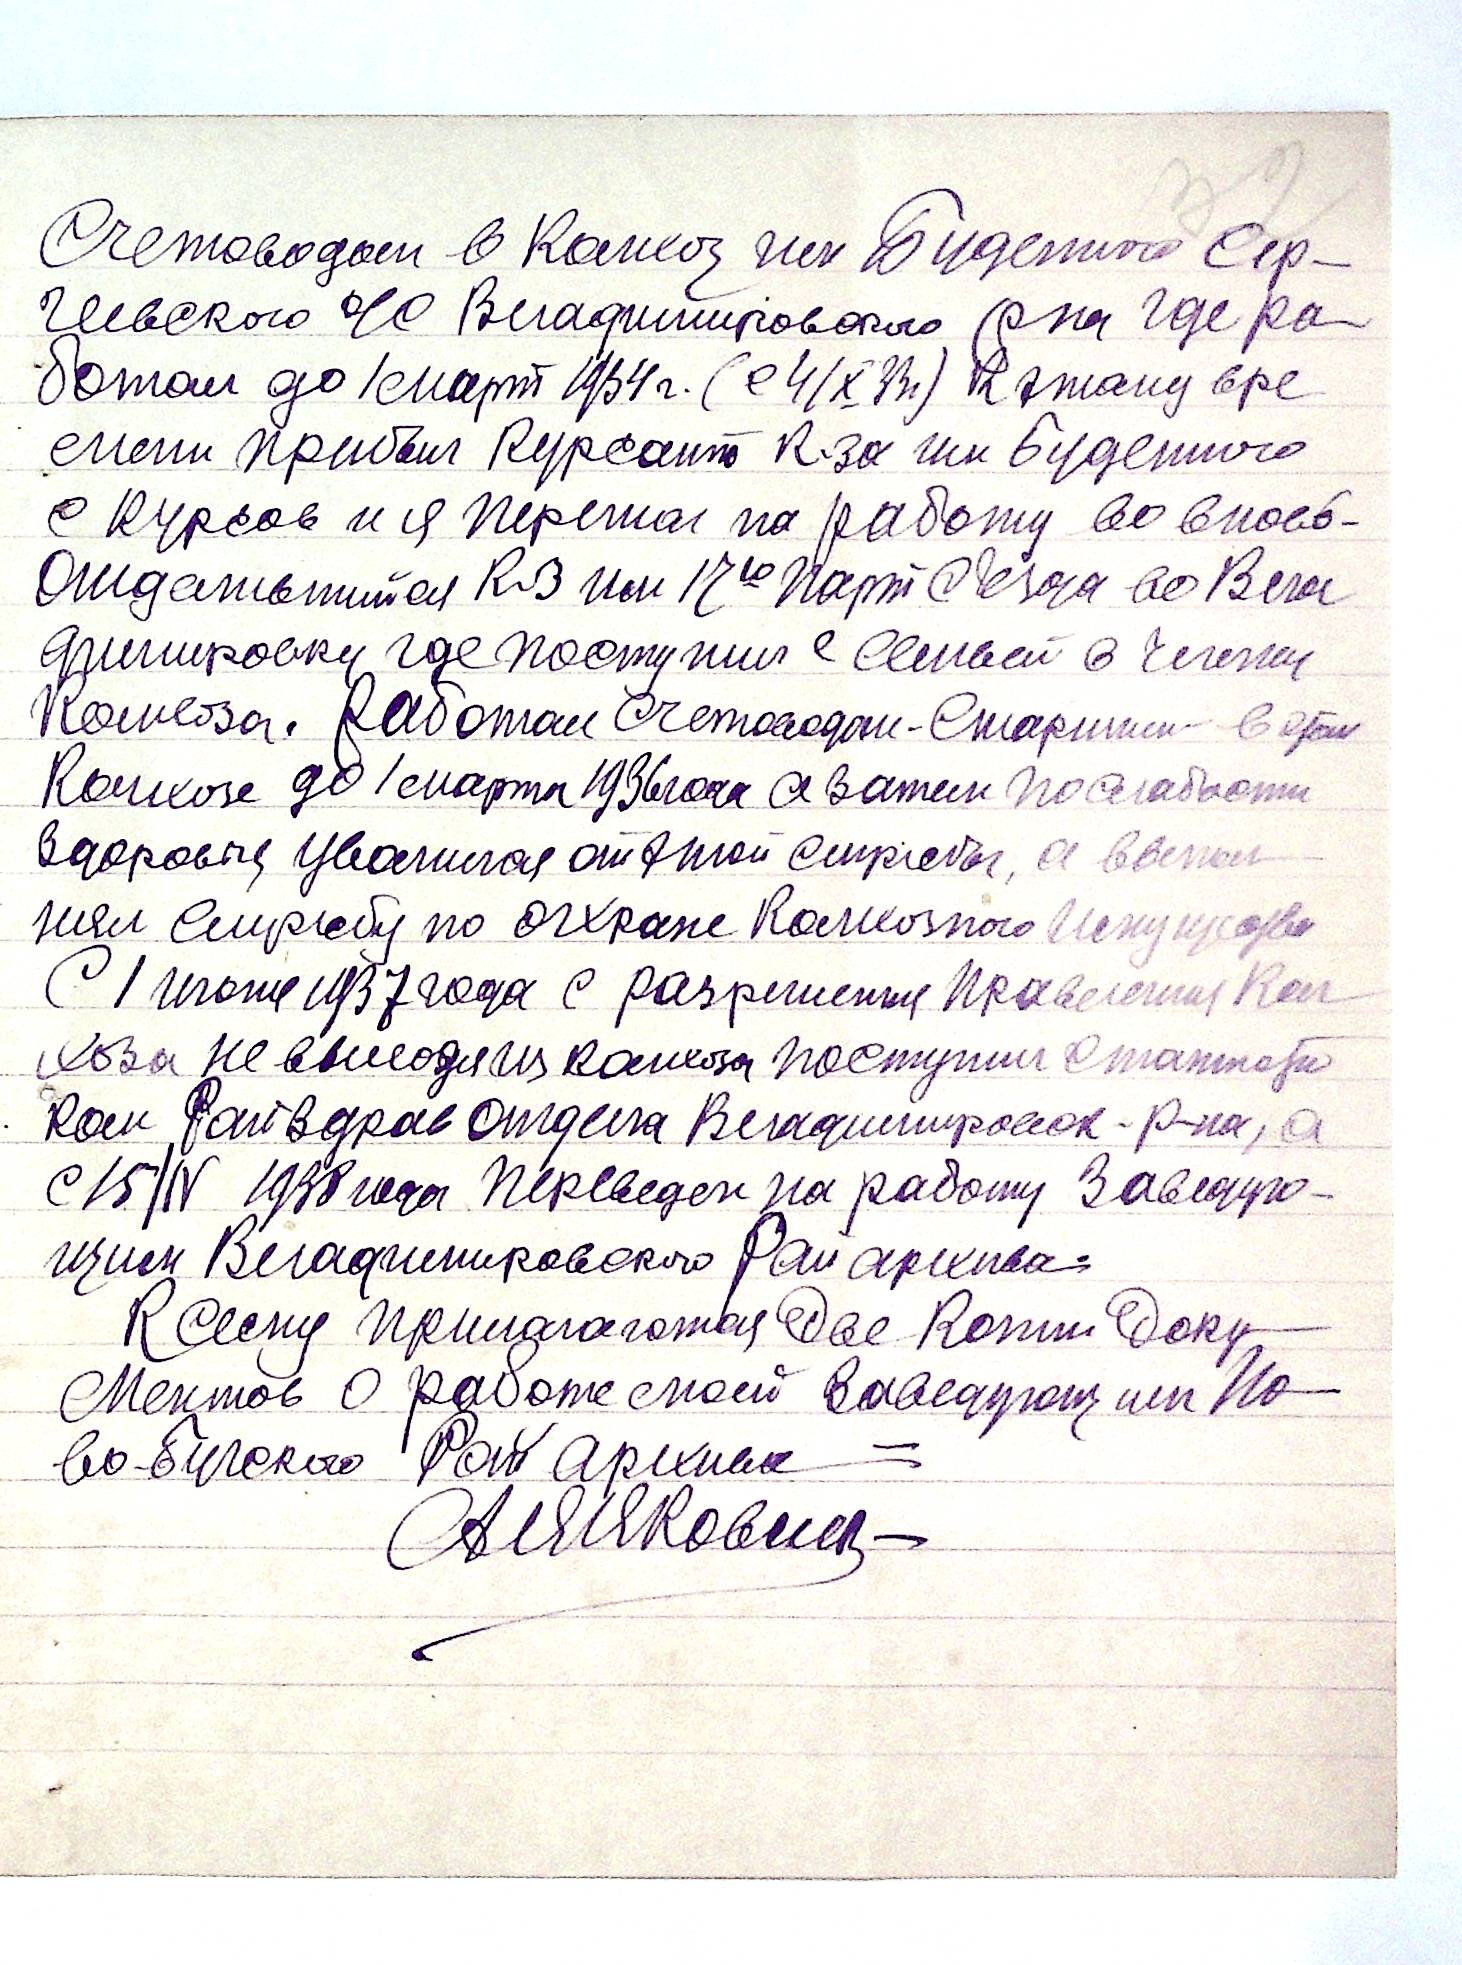 Счетоводом в Колхоз им Буденного Сер-
геевского с/с Владимировского р-на где ра-
ботал до 1 март 1934 г. (с 4/X 33г) К этому вре
мени прибыл Курсант К-за им Буденного
с Курсов и я перешол на работу во вновь-
Отделившийся К-з им 17го Парт Съезда во Вла
димировку где поступил с Семьей в члены
Колхоза. Работал Счетоводом-Старшим в этом
Колхозе до 1 марта 1936 года а затем по слабости
Здоровья Уволился от этой службы, а выпол
нял Службу по охране Колхозного Имущества
С 1 июня 1937 года с разрешения Правления Кол
хоза не выходя из колхоза поступил Статисти
ком Райздрав Отдела Владимировск-р-на, а
с 15/IV 1938 года Переведен на работу Заведую-
щим Владимировского Рай архива=
К Сему прилагаются Две Копии Доку
Ментов о работе моей Заведующим Но-
во-Бугского Рай архива =